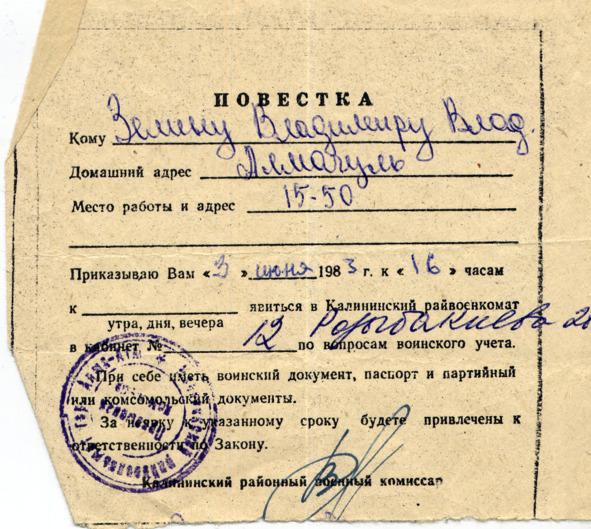 ПОВЕСТКА
Кому Зелину Владимиру Влад.
Домашний адрес Алмагуль
Место работы и адрес 15-50
Приказываю Вам «3» июня 1983 г. к «16» часам
к явиться в Калининский райвоенкомат
утра, дня, вечера
в кабинет № 12 Розыбакиева
по вопросам воинского учета.
При себе иметь воинский документ, паспорт и партийный
или комсомольский документы.
За неявку к указанному сроку будете привлечены к
ответственности по Закону.
Калининский районный военный комиссар